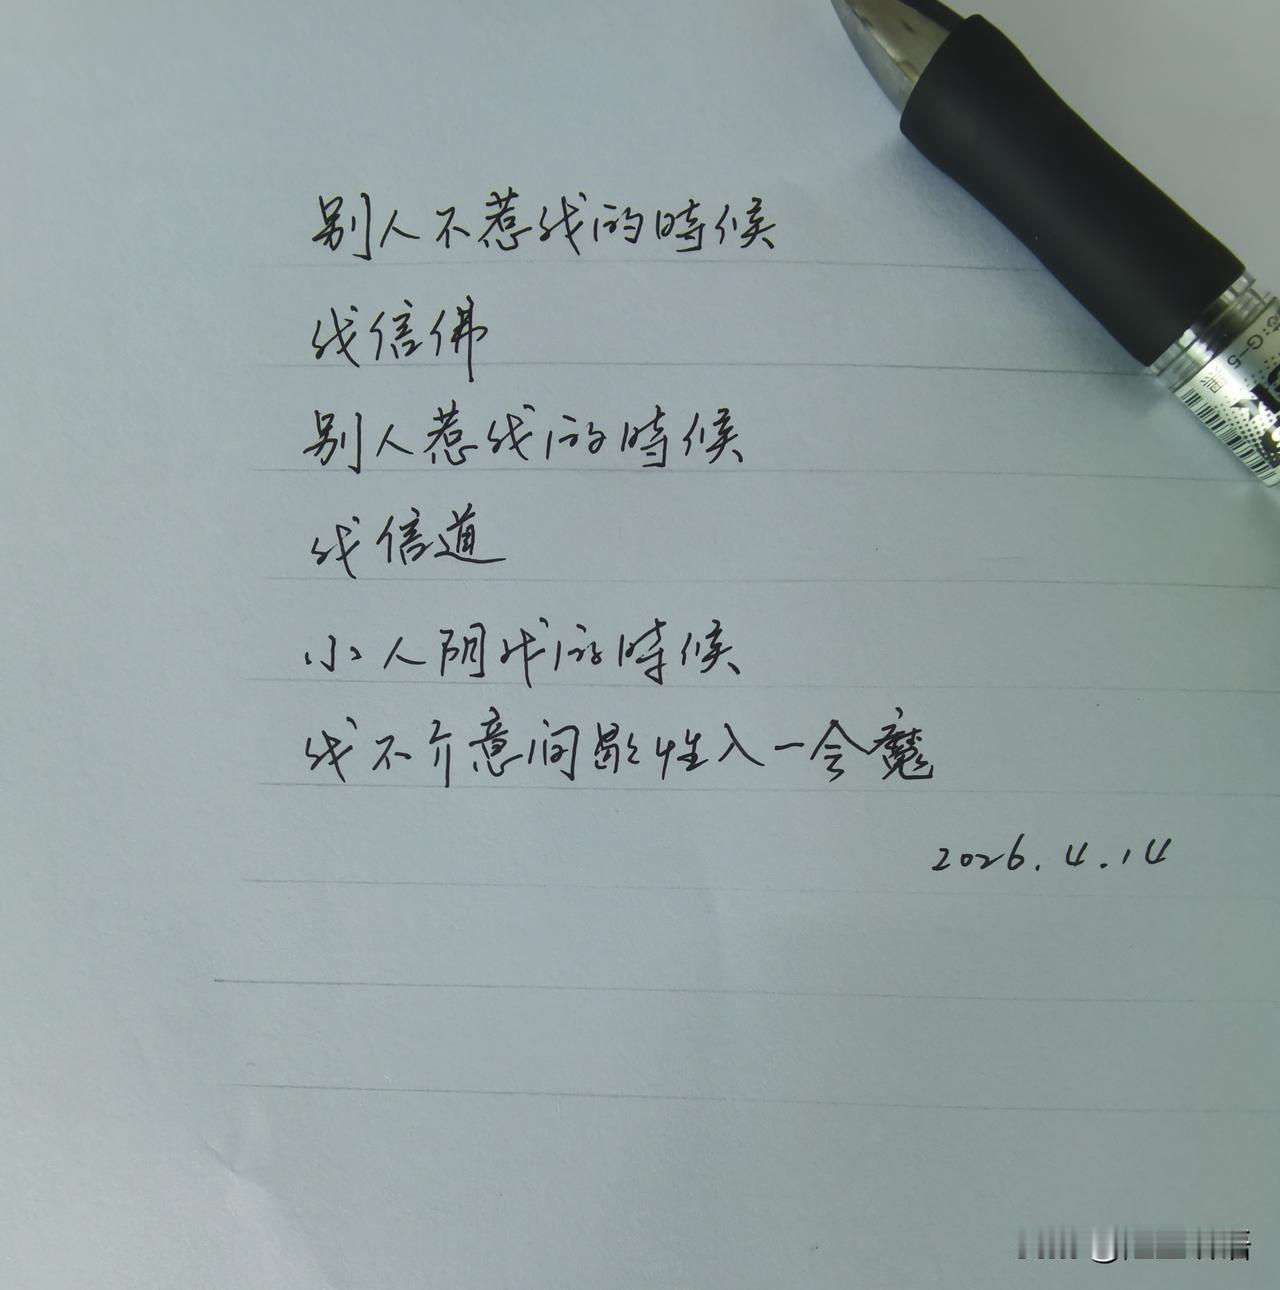 别人不惹我的時候
我信佛
别人惹我的時候
我信道
小人阴我的時候
我不介意间歇性入一会魔
2026.4.14
G-5